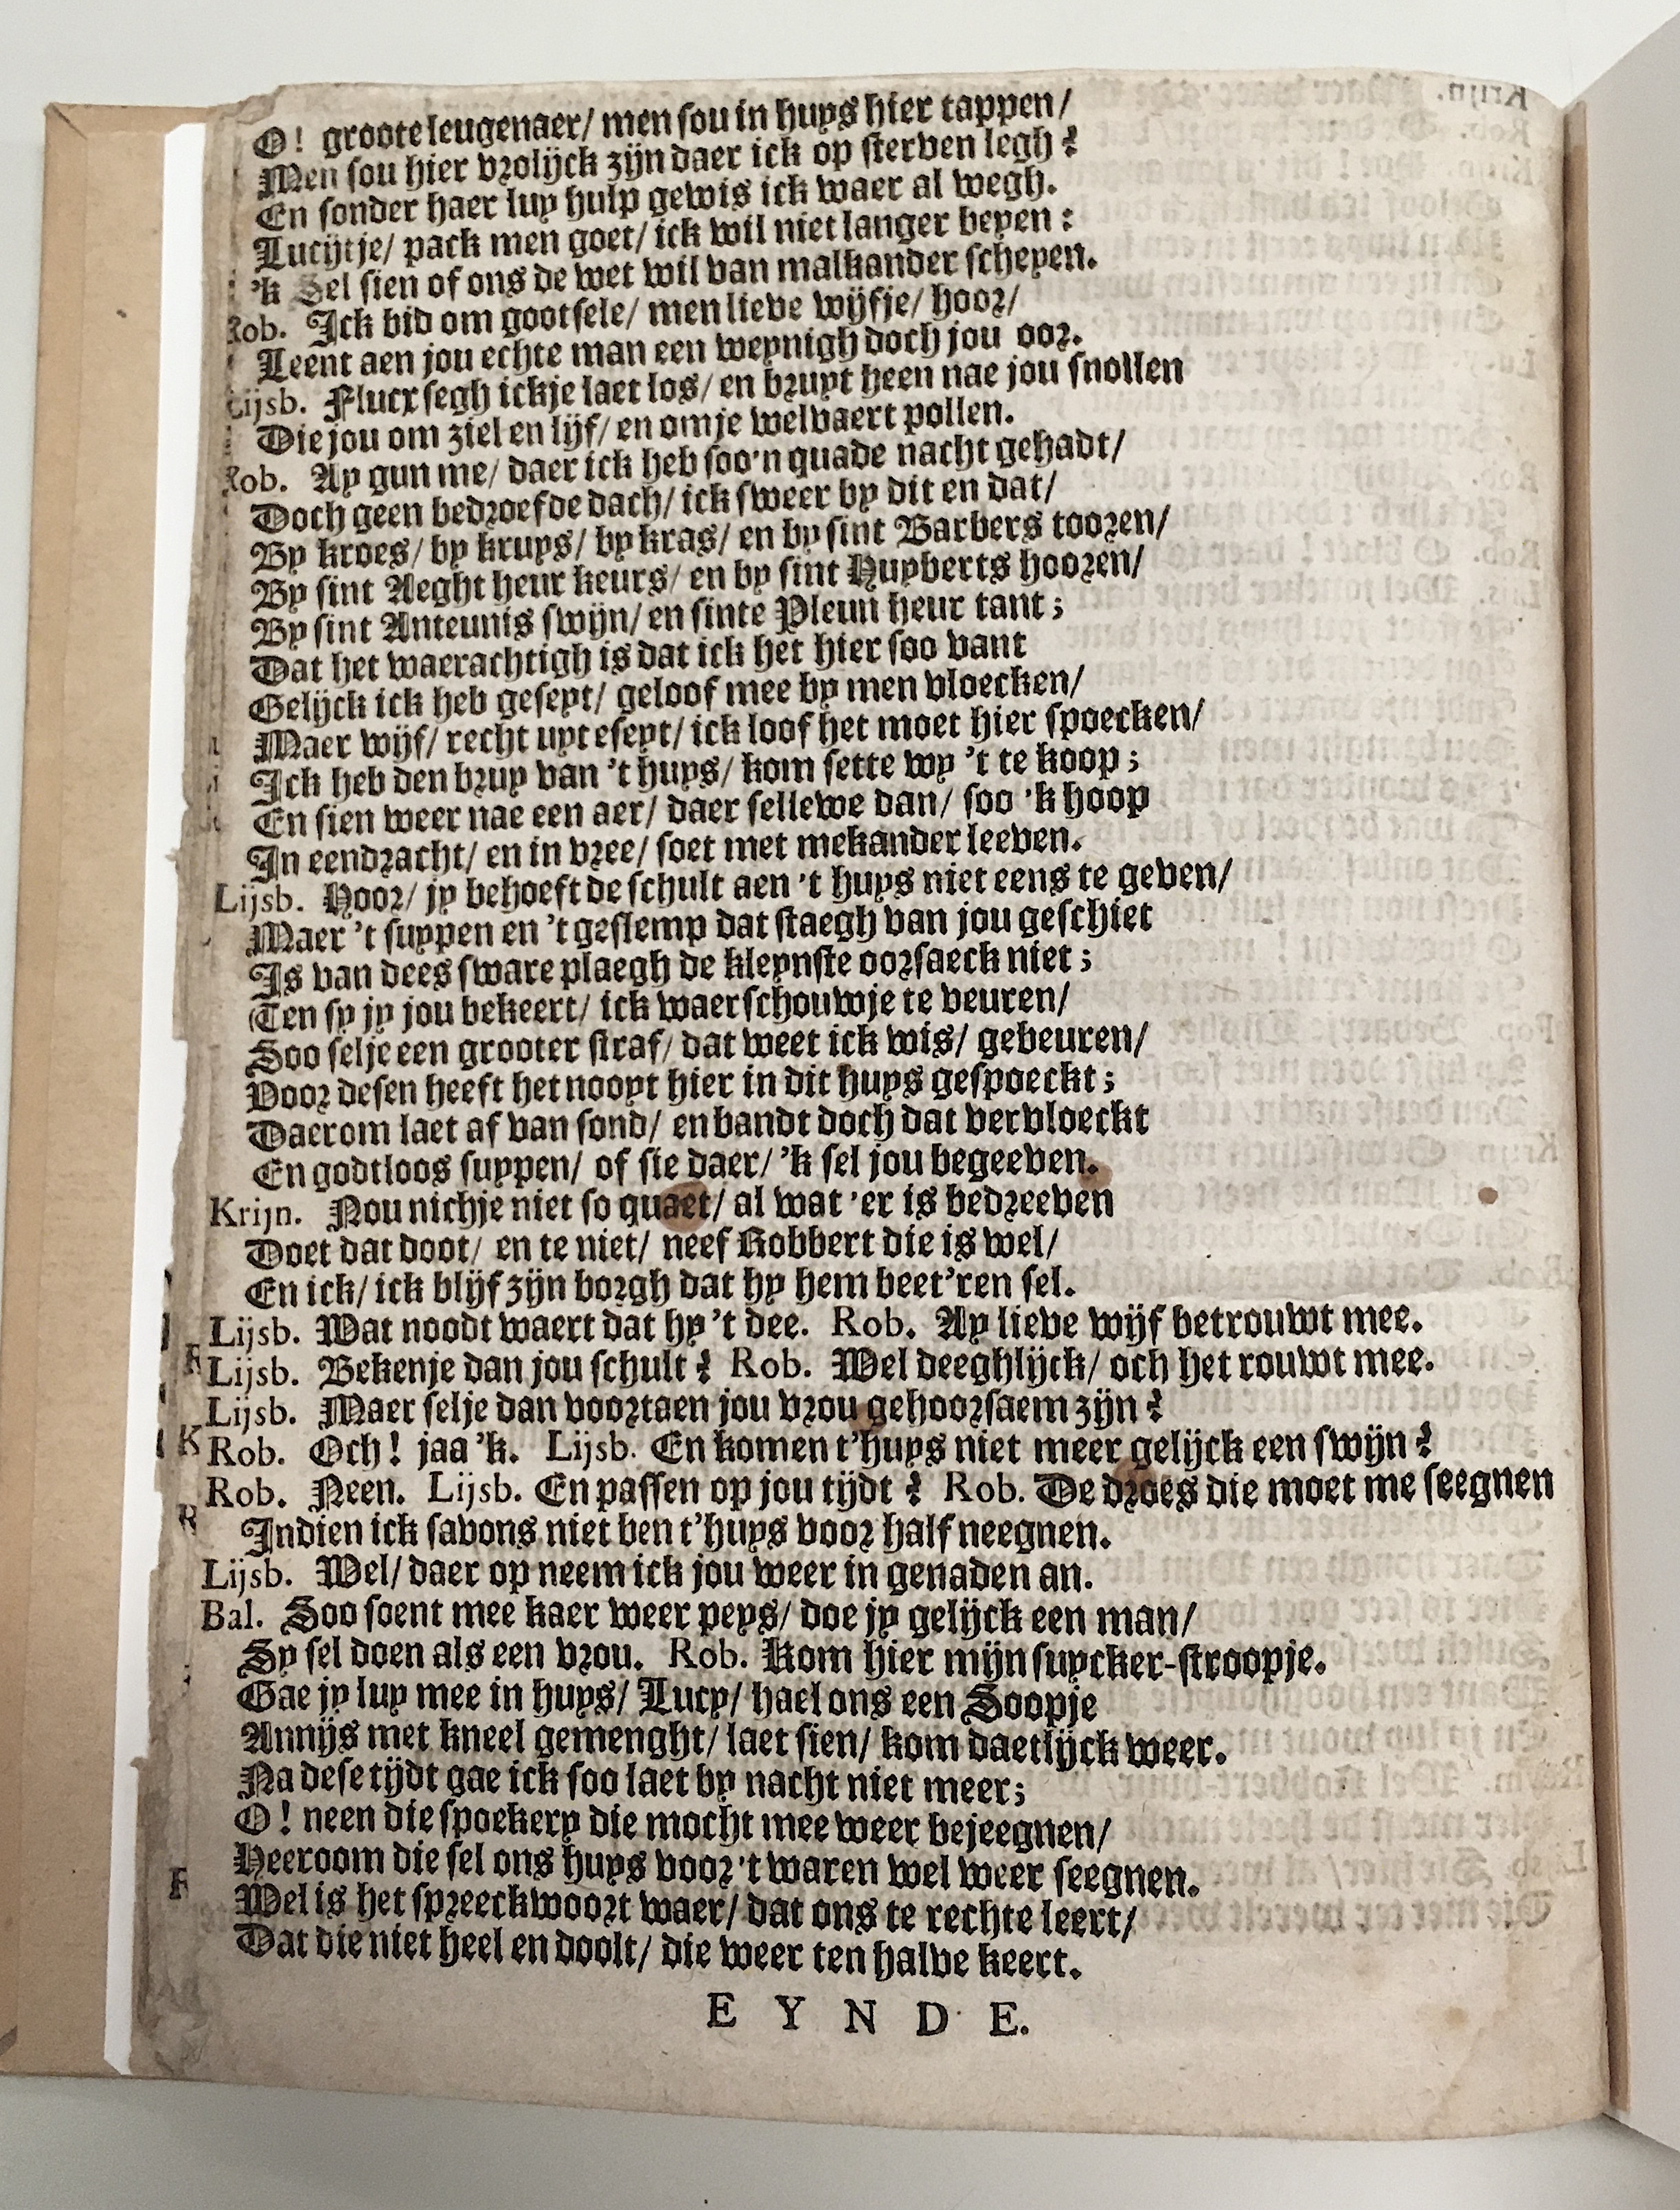 O! groote leugenaer/ men sou in huys hier tappen/
Men sou hier vrolijck zijn daer ick op sterven legh?
En sonder haer luy hulp gewis ick waer al wegh.
Lucijtje/ pack men goet/ ick wil niet langer beyen:
'k Sel sien of ons de wet wil van malkander scheyen.
Rob. Ick bid om gootsele/ men lieve wijfje/ hoor/
Leent aen jou echte man een weynigh doch jou oor.
Lijsb. Flucx segh ickje laet los/ en bruyt heen nae jou snollen
Die jou om ziel en lijf/ en omje welvaert pollen.
Rob. Ay gun me/ daer ick heb soo'n quade nacht gehadt/
Doch geen bedroefde dach/ ick sweer by dit en dat/
By kroes/ by kruys/ by kras/ en by sint Barbers tooren/
By sint Aeght heur keurs/ en by sint Huyberts hooren/
By sint Anteunis swijn/ en sinte Pleun heur tant;
Dat het waerachtigh is dat ick het hier soo vant
Gelijck ick heb geseyt/ geloof mee by men vloecken/
Maer wijf/ recht uyt eseyt/ ick loof het moet hier spoecken/
Ick heb den bruy van 't huys/ kom sette wy 't te koop;
En sien weer nae een aer/ daer sellewe dan/ soo 'k hoop
In eendracht/ en in vree/ soet met mekander leeven.
Lijsb. Hoor/ jy behoeft de schult aen 't huys niet eens te geven/
Maer 't suypen en 't geslemp dat staegh van jou geschiet
Is van dees sware plaegh de kleynste oorsaeck niet;
Ten sy jy jou bekeert/ ick waerschouwje te veuren/
Soo selje een grooter straf/ dat weet ick wis/ gebeuren/
Voor desen heeft het nooyt hier in dit huys gespoeckt;
Daerom laet af van sond/ en bandt doch dat vervloeckt
En godtloos suypen/ of sie daer/ 'k sel jou begeeven.
Krijn. Nou nichje niet so quaet/ al wat 'er is bedreeven
Doet dat doot/ en te niet/ neef Robbert die is wel/
En ick/ ick blijf zijn borgh dat hy hem beet'ren sel.
Lijsb. Wat noodt waert dat hy 't dee. Rob. Ay lieve wijf betrouwt mee.
Lijsb. Bekenje dan jou schult? Rob. Wel deeghlijck/ och het rouwt mee.
Lijsb. Maer selje dan voortaen jou vrou gehoorsaem zijn?
Rob. Och! jaa 'k. Lijsb. En komen t'huys niet meer gelijck een swijn?
Rob. Neen. Lijsb. En passen op jou tijdt? Rob. De droes die moet me seegnen
Indien ick savons niet ben t'huys voor half neegnen.
Lijsb. Wel/ daer op neem ick jou weer in genaden an.
Bal. Soo soent mee kaer weer peys/ doe jy gelijck een man/
Sy sel doen als een vrou. Rob. Kom hier mijn suycker-stroopje.
Gae jy luy mee in huys/ Lucy/ hael ons een Soopje
Annijs met kneel gemenght/ laet sien/ kom daetlijck weer.
Na dese tijdt gae ick soo laet by nacht niet meer;
O! neen die spoekery die mocht mee weer bejeegnen/
Heeroom die sel ons huys voor 't waren wel weer seegnen.
Wel is het spreeckwoort waer/ dat ons te rechte leert/
Dat die niet heel en doolt/ die weer ten halve keert.
EYNDE.